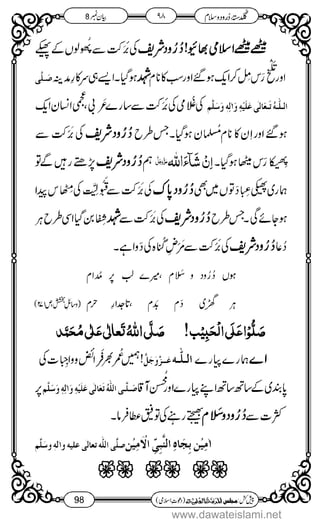 گلدستۂ درود و سلام ۹۸ بیان نمبر 8
میٹھے میٹھے اسلامی بھائیو! دُرُود شریف کی بَرَکت سے پھولوں کے پھیکے
اور تلخ رَس مل کر ایک ہو گئے اور سب کا نام شہد ہو گیا۔ ایسے ہی سرکارِ مدینہ صَلَّی
اللہُ تَعَالٰی عَلَیْہِ وَاٰلِہٖ وَسَلَّم کی غلامی کی بَرَکت سے سارے عَرَبی، عَجَمی انسان ایک
ہو گئے اور ان کا نام مُسلمان ہو گیا۔ جس طرح دُرُود شریف کی بَرَکت سے
پھیکا رَس میٹھا ہو گیا۔ اِنْ شَآءَ اللہ عَزَّوَجَلَّ ہم دُرُود شریف پڑھتے رہیں گے تو
ہماری پھیکی عِبادتوں میں بھی دُرُودِ پاک کی بَرَکت سے قُبولیت کی مٹھاس پیدا
ہو جائے گی۔ جس طرح دُرُود شریف کی بَرَکت سے شہد شِفا بن گیا اسی طرح ہر
دُعا دُرُود شریف کی بَرَکت سے مَرَضِ گناہ کی دَوا ہے۔
ہوں دُرُود و سلام، میرے لب پر مُدام
ہر گھڑی دَم بَدَم، تاجدارِ حرم
صَلُّوْا عَلَی الْحَبِیْب! صَلَّی اللہُ تَعَالٰی عَلٰی مُحَمَّد
اے ہمارے پیارے اللہ عَزَّوَجَلَّ! ہمیں عُمر بھر فرائض و واجبات کی
پابندی کے ساتھ ساتھ اپنے پیارے اور مُحسن آقا صَلَّی اللہُ تَعَالٰی عَلَیْہِ وَاٰلِہٖ وَسَلَّم پر
کثرت سے دُرُود و سلام بھیجتے رہنے کی توفیق عطا فرما۔
اٰمِیْن بِجَاہِ النَّبِیِّ الْاَمِیْن صَلَّی اللہ تعالٰی علیہ واٰلہ وسلَّم
98
www.dawateislami.net